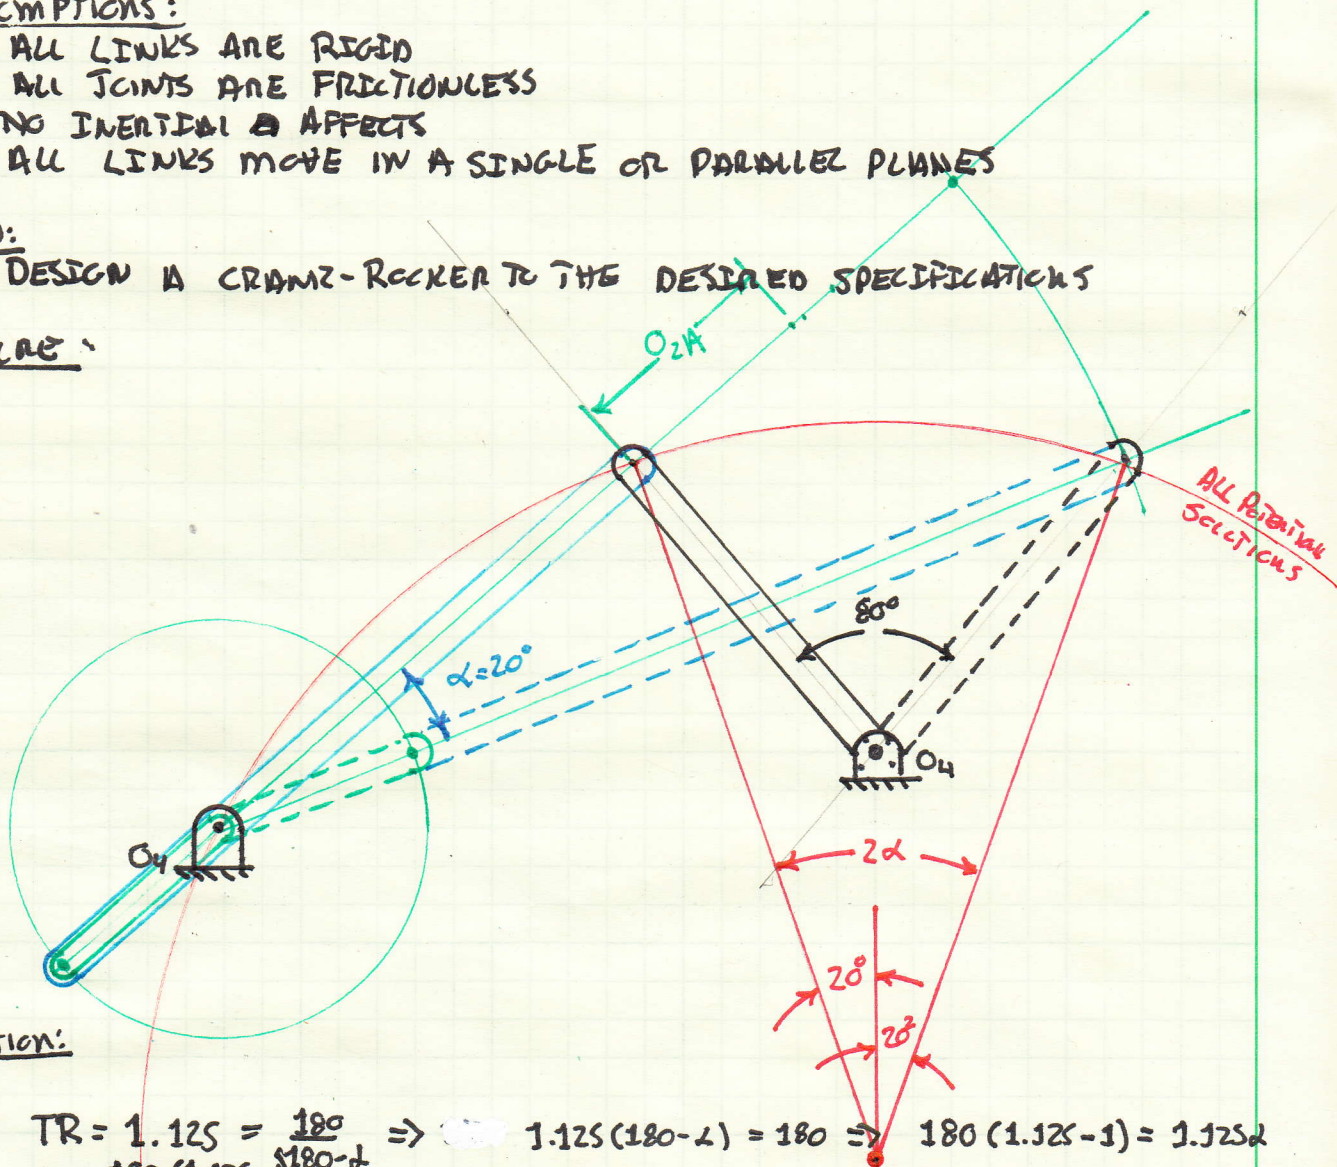 EMPTIONS:
ALL LINKS ARE RIGID
ALL JOINTS ARE FRICTIONLESS
NO INERTIAL AFFECTS
ALL LINKS MOVE IN A SINGLE OR PARALLEL PLANES
D:
DESIGN A CRANK-ROCKER TO THE DESIRED SPECIFICATIONS
URE:
O₂A
ALL POTENTIAL
SOLUTIONS
80°
α=20°
O₄
O₄
2α
20°
20°
TION:
TR = 1.125 = 180 / 180-α => 1.125(180-α) = 180 => 180(1.125-1) = 1.125α